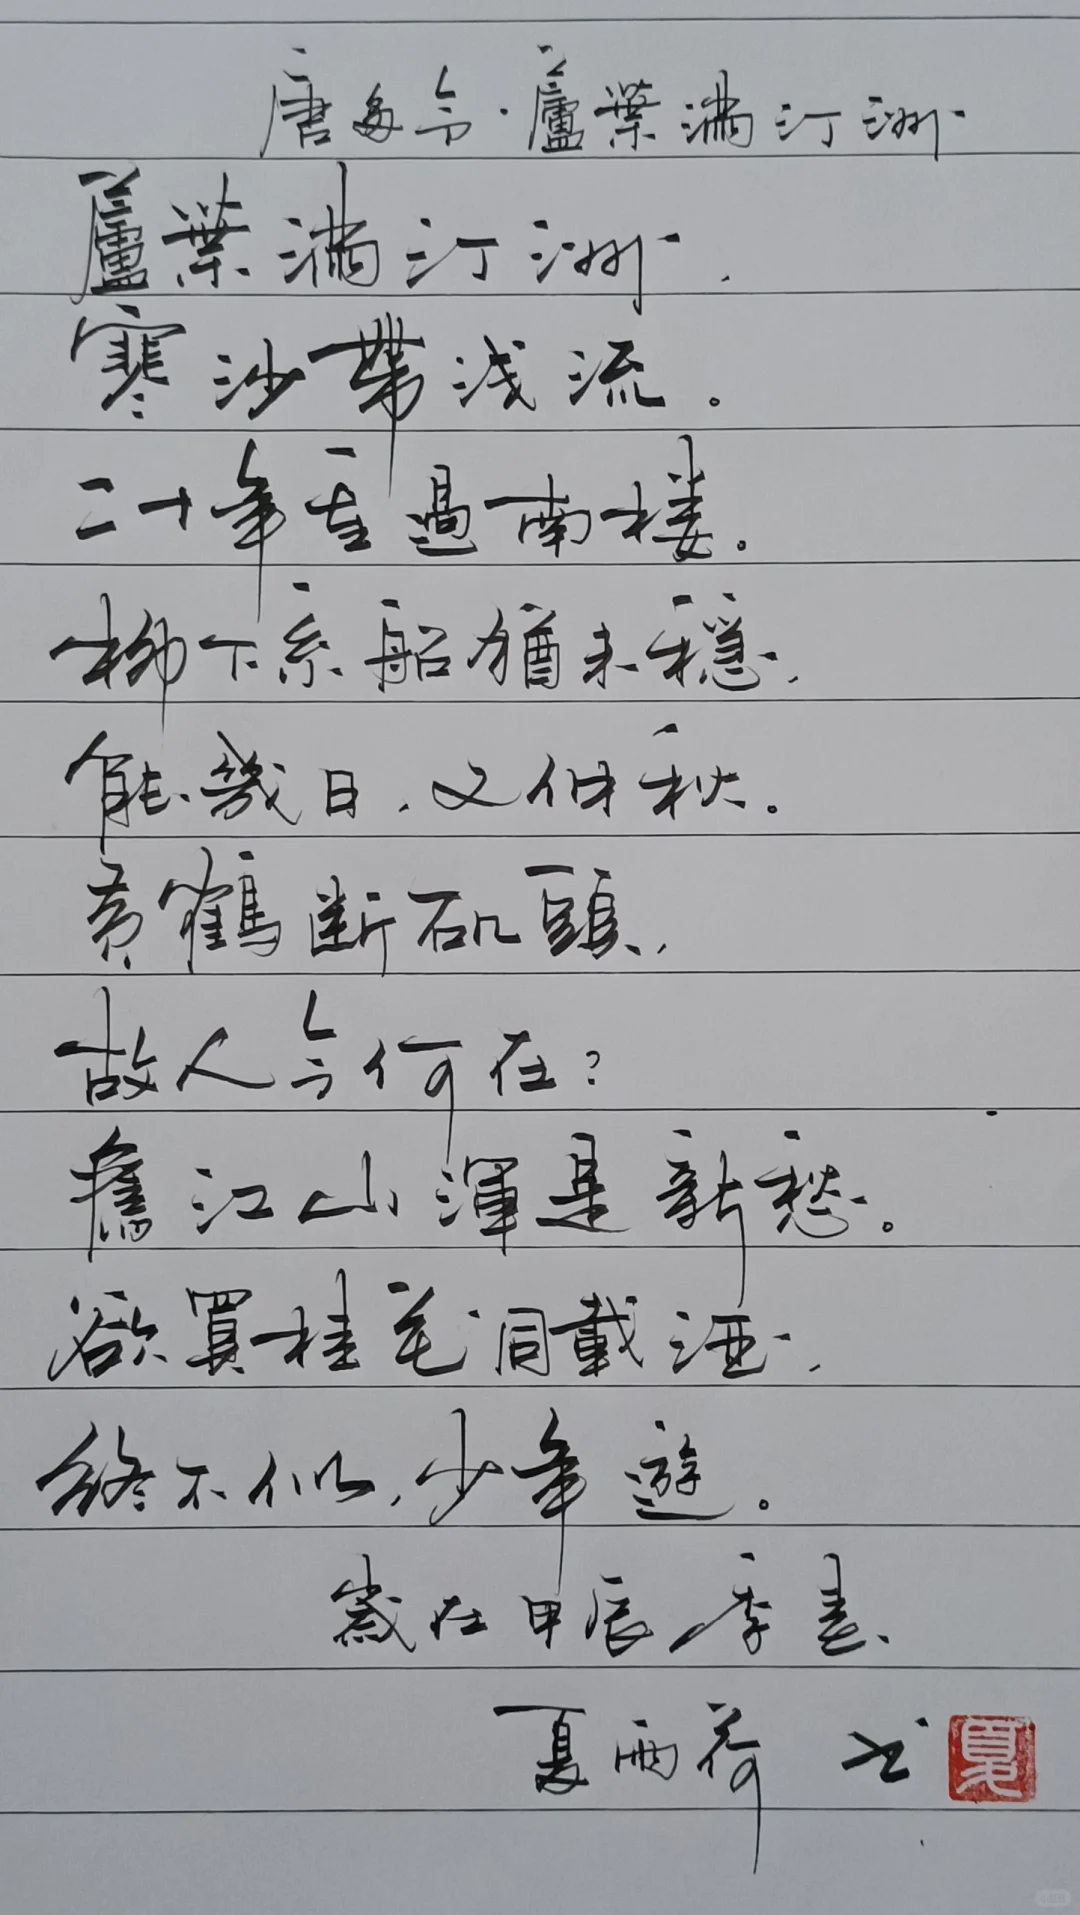 唐多令·蘆葉满汀洲
蘆葉满汀洲,
寒沙帶浅流。
二十年重過南楼。
柳下系船猶未穩,
能幾日,又仲秋。
黄鶴断矶頭,
故人今何在?
舊江山渾是新愁。
欲買桂花同載酒,
終不似,少年遊。
歲在甲辰季春
夏雨荷 书
夏